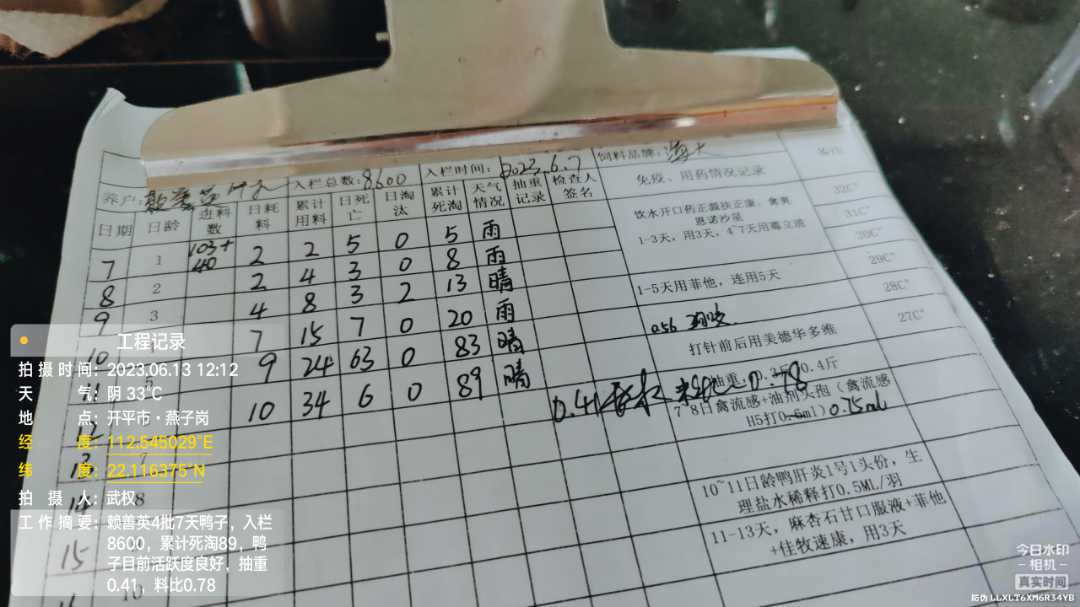 养户: 赖善英 入栏总数: 8600 入栏时间: 2023.6.7 饲料品牌: 海大
日期 日龄 进料数 日耗料 累计用料 日死亡 日淘汰 累计死淘 天气情况 抽重记录 检查人签名 免疫、用药情况记录
7 1 103+40 2 2 5 0 5 雨
8 2 2 4 3 0 8 雨
9 3 4 8 3 2 13 晴
10 7 15 7 0 20 雨
9 24 63 0 83 晴
10 34 6 0 89 晴
13
14 8
15
10
饮水开口药正囊扶正康、禽黄
恩诺沙星
1-3天,用3天,4~7天用霉立清
32C°
31C°
30C°
29C°
28C°
27C°
1-5天用菲他,连用5天
打针前后用美德华多维
0.41
0.78
0.4斤
7~8日禽流感+油剂大孢(禽流感
H5打0.5ml) 0.75ml
10~11日龄鸭肝炎1号1头份,生
理盐水稀释打0.5ML/羽
11-13天,麻杏石甘口服液+菲他
+佳牧速康,用3天
工程记录
拍摄时间: 2023.06.13 12:12
天气: 阴 33℃
地点: 开平市·燕子岗
经度: 112.545029°E
纬度: 22.116375°N
拍摄人: 武权
工作摘要: 赖善英4批7天鸭子,入栏
8600,累计死淘89,鸭
子目前活跃度良好,抽重
0.41,料比0.78
今日水印
-相机-
真实时间
防伪 LLXLT6XM6R34YB